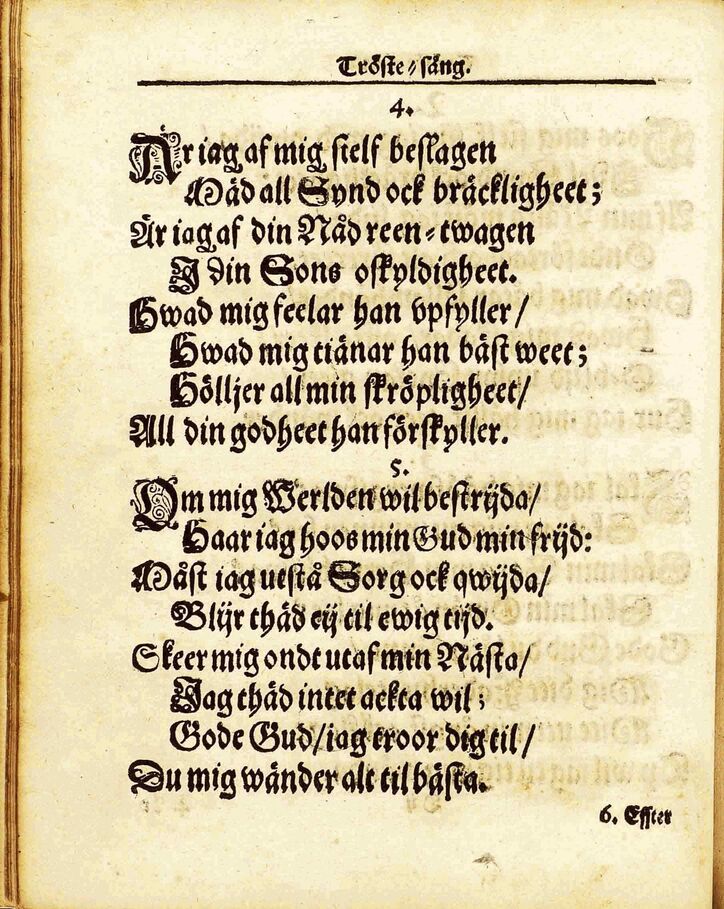 Tröste⸗sång.
4.
Är iag af mig sielf beslagen
Mäd all Synd ock bräckligheet;
Är iag af din Nåd reen⸗twagen
J din Sons oskyldigheet.
Hwad mig feelar han vpfyller/
Hwad mig tiänar han bäst weet;
Hölljer all min skröpligheet/
All din godheet han förskyller.
5.
Om mig Werlden wil bestrijda/
Haar iag hoos min Gud min frijd:
Måst iag utstå Sorg ock qwijda/
Blijr thäd eij til ewig tijd.
Skeer mig ondt utaf min Nästa/
Jag thäd intet ackta wil;
Gode Gud/ iag troor dig til/
Du mig wänder alt til bästa.
6. Effter